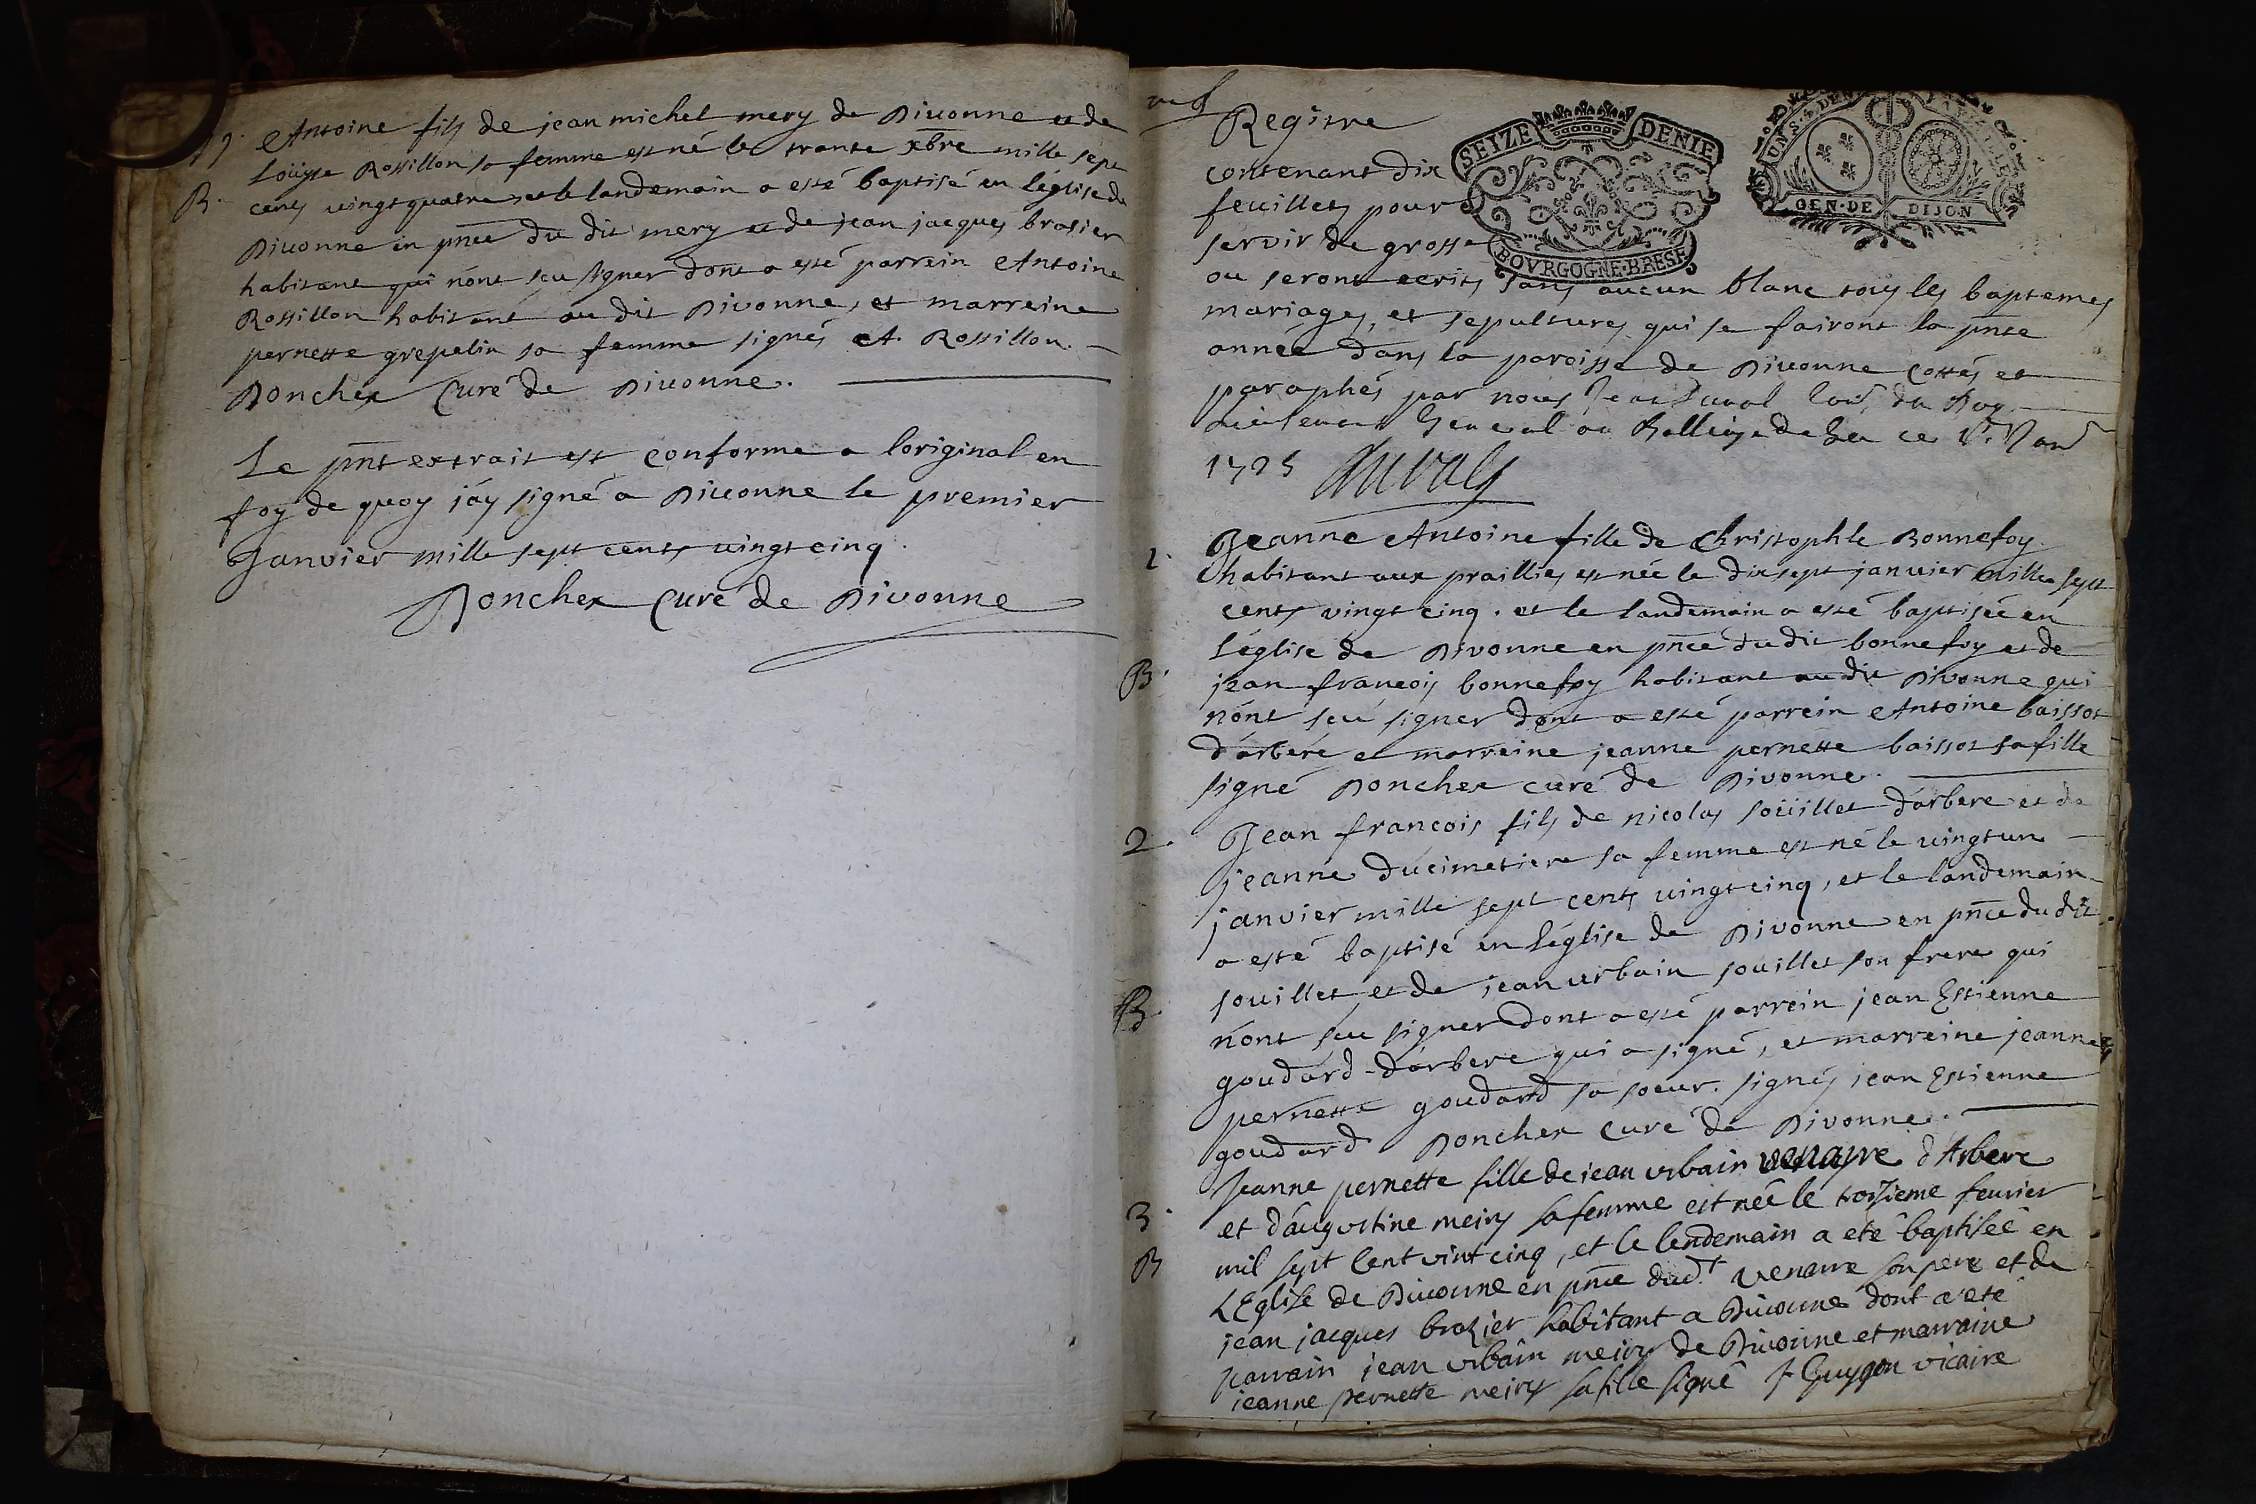 Antoine fils de jean michel mery de Divonne et de
Loüyse Rossillon sa femme est né le trante xbre mille sept
cents vingt quatre et le landemain a esté baptisé en l'église de
B.
Divonne en pnce du dit mery et de jean jacques brasier
habitant qui n'ont sceu signer dont a esté parrein Antoine
Rossillon habitant au dit Divonne, et marreine
pernette grepelin sa femme signés A. Rossillon.
Poncher Curé de Divonne.
Le pnt extrait est conforme a l'original en
foy de quoy j'ay signé a Divonne le premier
Janvier mille sept cents vingt cinq.
Poncher Curé de Divonne
Registre
contenant dix
feuillets pour
servir de grosse
SEIZE DENIE
BOVRGOGNE·BRESE
GEN·DE DIJON
ou seront ecrits sans aucun blanc tous les baptemes
mariages, et sepultures qui se fairont la pnte
année dans la paroisse de Divonne cottés et
paraphés par nous du Roy
Lieutenant General au Balliage de Gex ce
1725 Duval
1. Jeanne Antoine fille de Christophle Bonnefoy
habitant aux praillies est née le dixsept janvier mille sept
cents vingt cinq. et le landemain a esté baptisée en
l'église de Divonne en pnce du dit bonnefoy et de
B. jean françois bonnefoy habitant au dit Divonne qui
n'ont sceu signer dont a esté parrein Antoine baissot
d'arbere et marreine jeanne pernette baissot sa fille
signé Poncher curé de Divonne.
2. Jean françois fils de nicolas soüillet d'arbere et de
jeanne ducimetiere sa femme est né le vingt un
janvier mille sept cents vingt cinq, et le landemain
a esté baptisé en l'église de Divonne en pnce du dit
souillet et de jean urbain souillet son frere qui
B. n'ont sceu signer dont a esté parrein jean Estienne
goudard d'arbere qui a signé, et marreine jeanne
pernette goudard sa soeur. signés jean Estienne
goudard Poncher curé de Divonne.
Jeanne pernette fille de jean urbain venarre d'Arbere
3. et d'augustine meiry sa femme est née le troisieme fevrier
B mil sept cent vint cinq, et le lendemain a eté baptisée en
L'Eglise de Divonne en pnce dudt venarre son pere et de
jean jacques brazier habitant a Divonne dont a eté
parrain jean urbain meiry de Divonne et marraine
jeanne pernette meiry sa fille signé vicaire